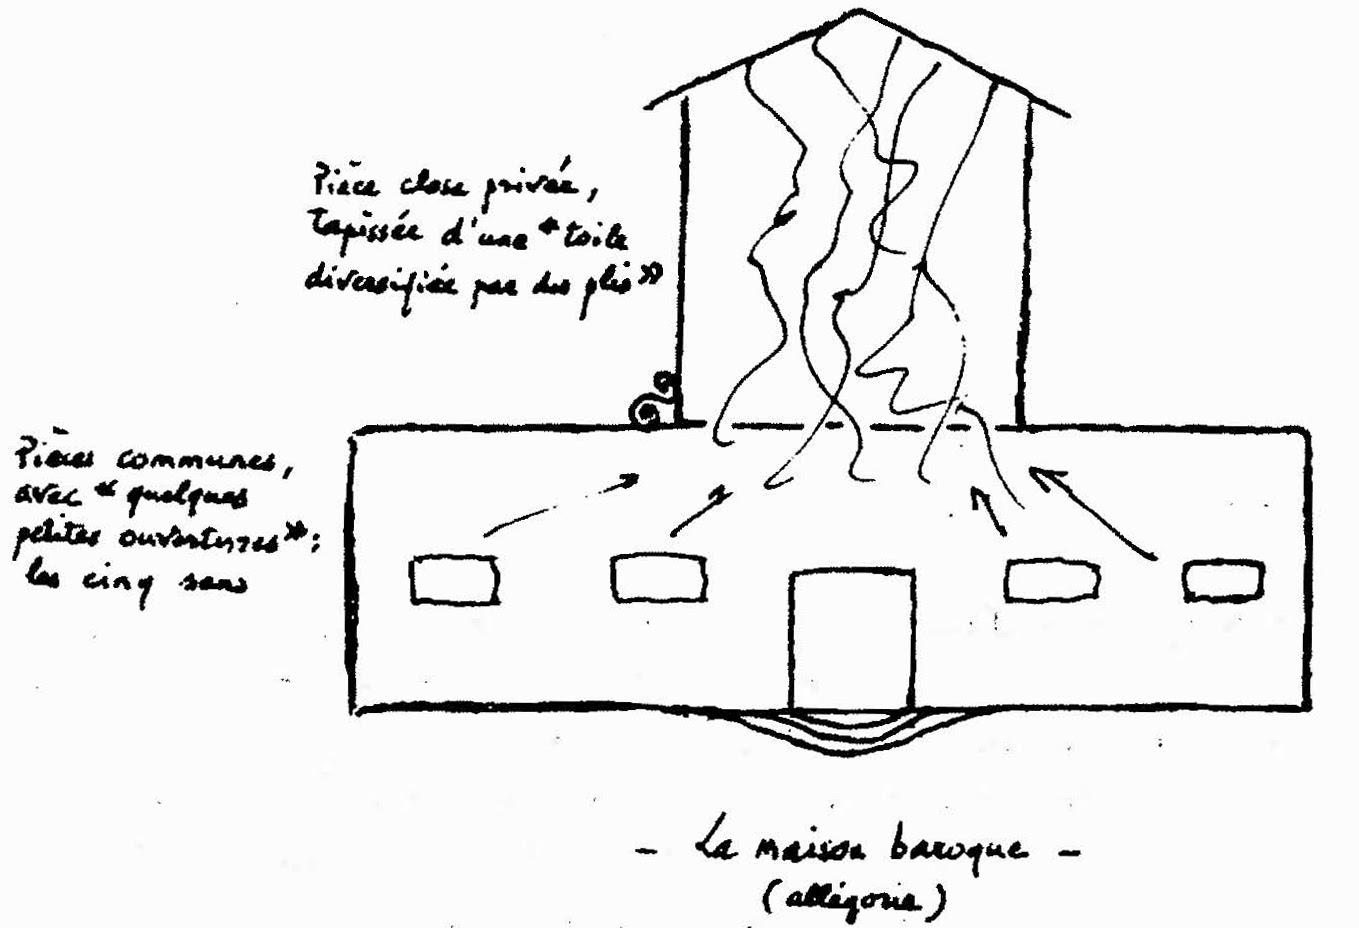 Pièce close privée,
tapissée d'une « toile
diversifiée par des plis »
Pièces communes,
avec « quelques
petites ouvertures » :
les cinq sens
– La maison baroque –
(allégorie)